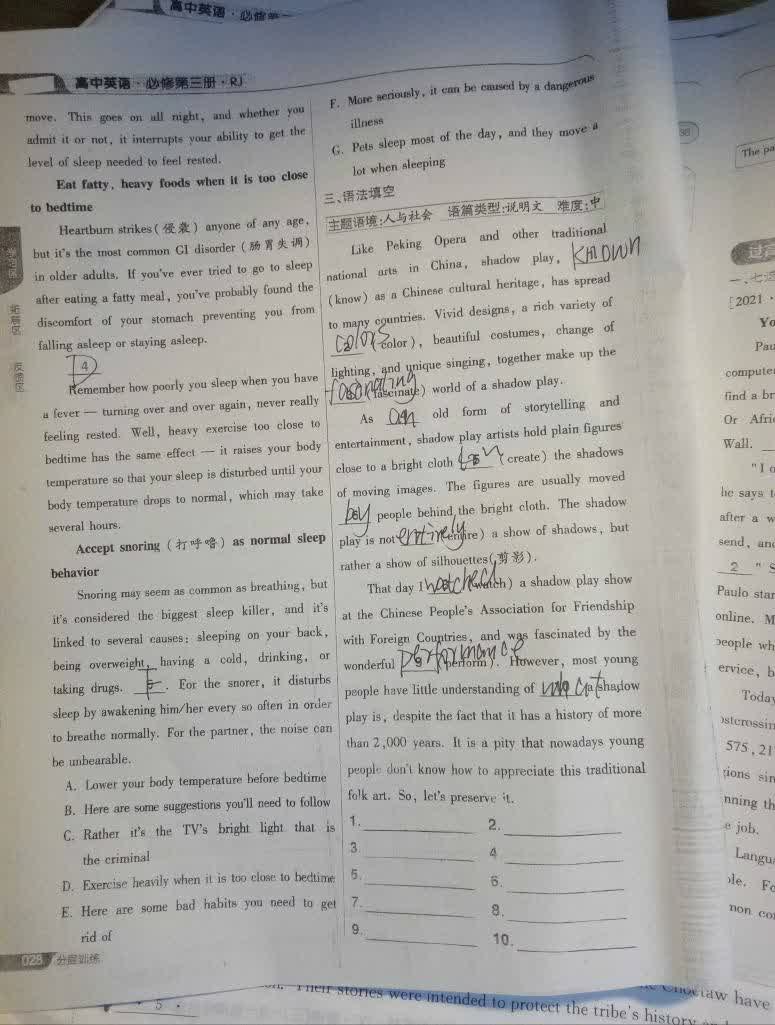 高中英语·必修第
高中英语·必修第三册·RJ
move. This goes on all night, and whether you
admit it or not, it interrupts your ability to get the
level of sleep needed to feel rested.
Eat fatty, heavy foods when it is too close
to bedtime
Heartburn strikes(侵袭) anyone of any age,
but it's the most common GI disorder (肠胃失调)
in older adults. If you've ever tried to go to sleep
after eating a fatty meal, you've probably found the
discomfort of your stomach preventing you from
falling asleep or staying asleep.
4 D
Remember how poorly you sleep when you have
a fever — turning over and over again, never really
feeling rested. Well, heavy exercise too close to
bedtime has the same effect — it raises your body
temperature so that your sleep is disturbed until your
body temperature drops to normal, which may take
several hours.
Accept snoring (打呼噜) as normal sleep
behavior
Snoring may seem as common as breathing, but
it's considered the biggest sleep killer, and it's
linked to several causes: sleeping on your back,
being overweight, having a cold, drinking, or
taking drugs. 5 F. For the snorer, it disturbs
sleep by awakening him/her every so often in order
to breathe normally. For the partner, the noise can
be unbearable.
A. Lower your body temperature before bedtime
B. Here are some suggestions you'll need to follow
C. Rather it's the TV's bright light that is
the criminal
D. Exercise heavily when it is too close to bedtime
E. Here are some bad habits you need to get
rid of
028 分层训练
F. More seriously, it can be caused by a dangerous
illness
G. Pets sleep most of the day, and they move a
lot when sleeping
三、语法填空
主题语境:人与社会 语篇类型:说明文 难度:中
Like Peking Opera and other traditional
national arts in China, shadow play, KNOWN
(know) as a Chinese cultural heritage, has spread
to many countries. Vivid designs, a rich variety of
2 colors (color), beautiful costumes, change of
lighting, and unique singing, together make up the
(fascinate) world of a shadow play.
As an old form of storytelling and
entertainment, shadow play artists hold plain figures
close to a bright cloth 5 (create) the shadows
of moving images. The figures are usually moved
by people behind the bright cloth. The shadow
play is not entirely (entire) a show of shadows, but
rather a show of silhouettes(剪影).
That day I watched (watch) a shadow play show
at the Chinese People's Association for Friendship
with Foreign Countries, and was fascinated by the
wonderful performance 9 (perform). However, most young
people have little understanding of what a shadow
play is, despite the fact that it has a history of more
than 2,000 years. It is a pity that nowadays young
people don't know how to appreciate this traditional
folk art. So, let's preserve it.
1. 2.
3. 4
5. 6.
7. 8.
9. 10.
The pa
过
一、七
[2021·
Yo
Pau
compute
find a br
Or Afri
Wall.
"I o
he says t
after a w
send, an
2 " S
Paulo star
online. M
people wh
ervice, b
Today
ostcrossin
575,21
gions sin
nning th
e job.
Langua
ple. Fo
non co
5
Their stories were intended to protect the tribe's history
Choctaw have